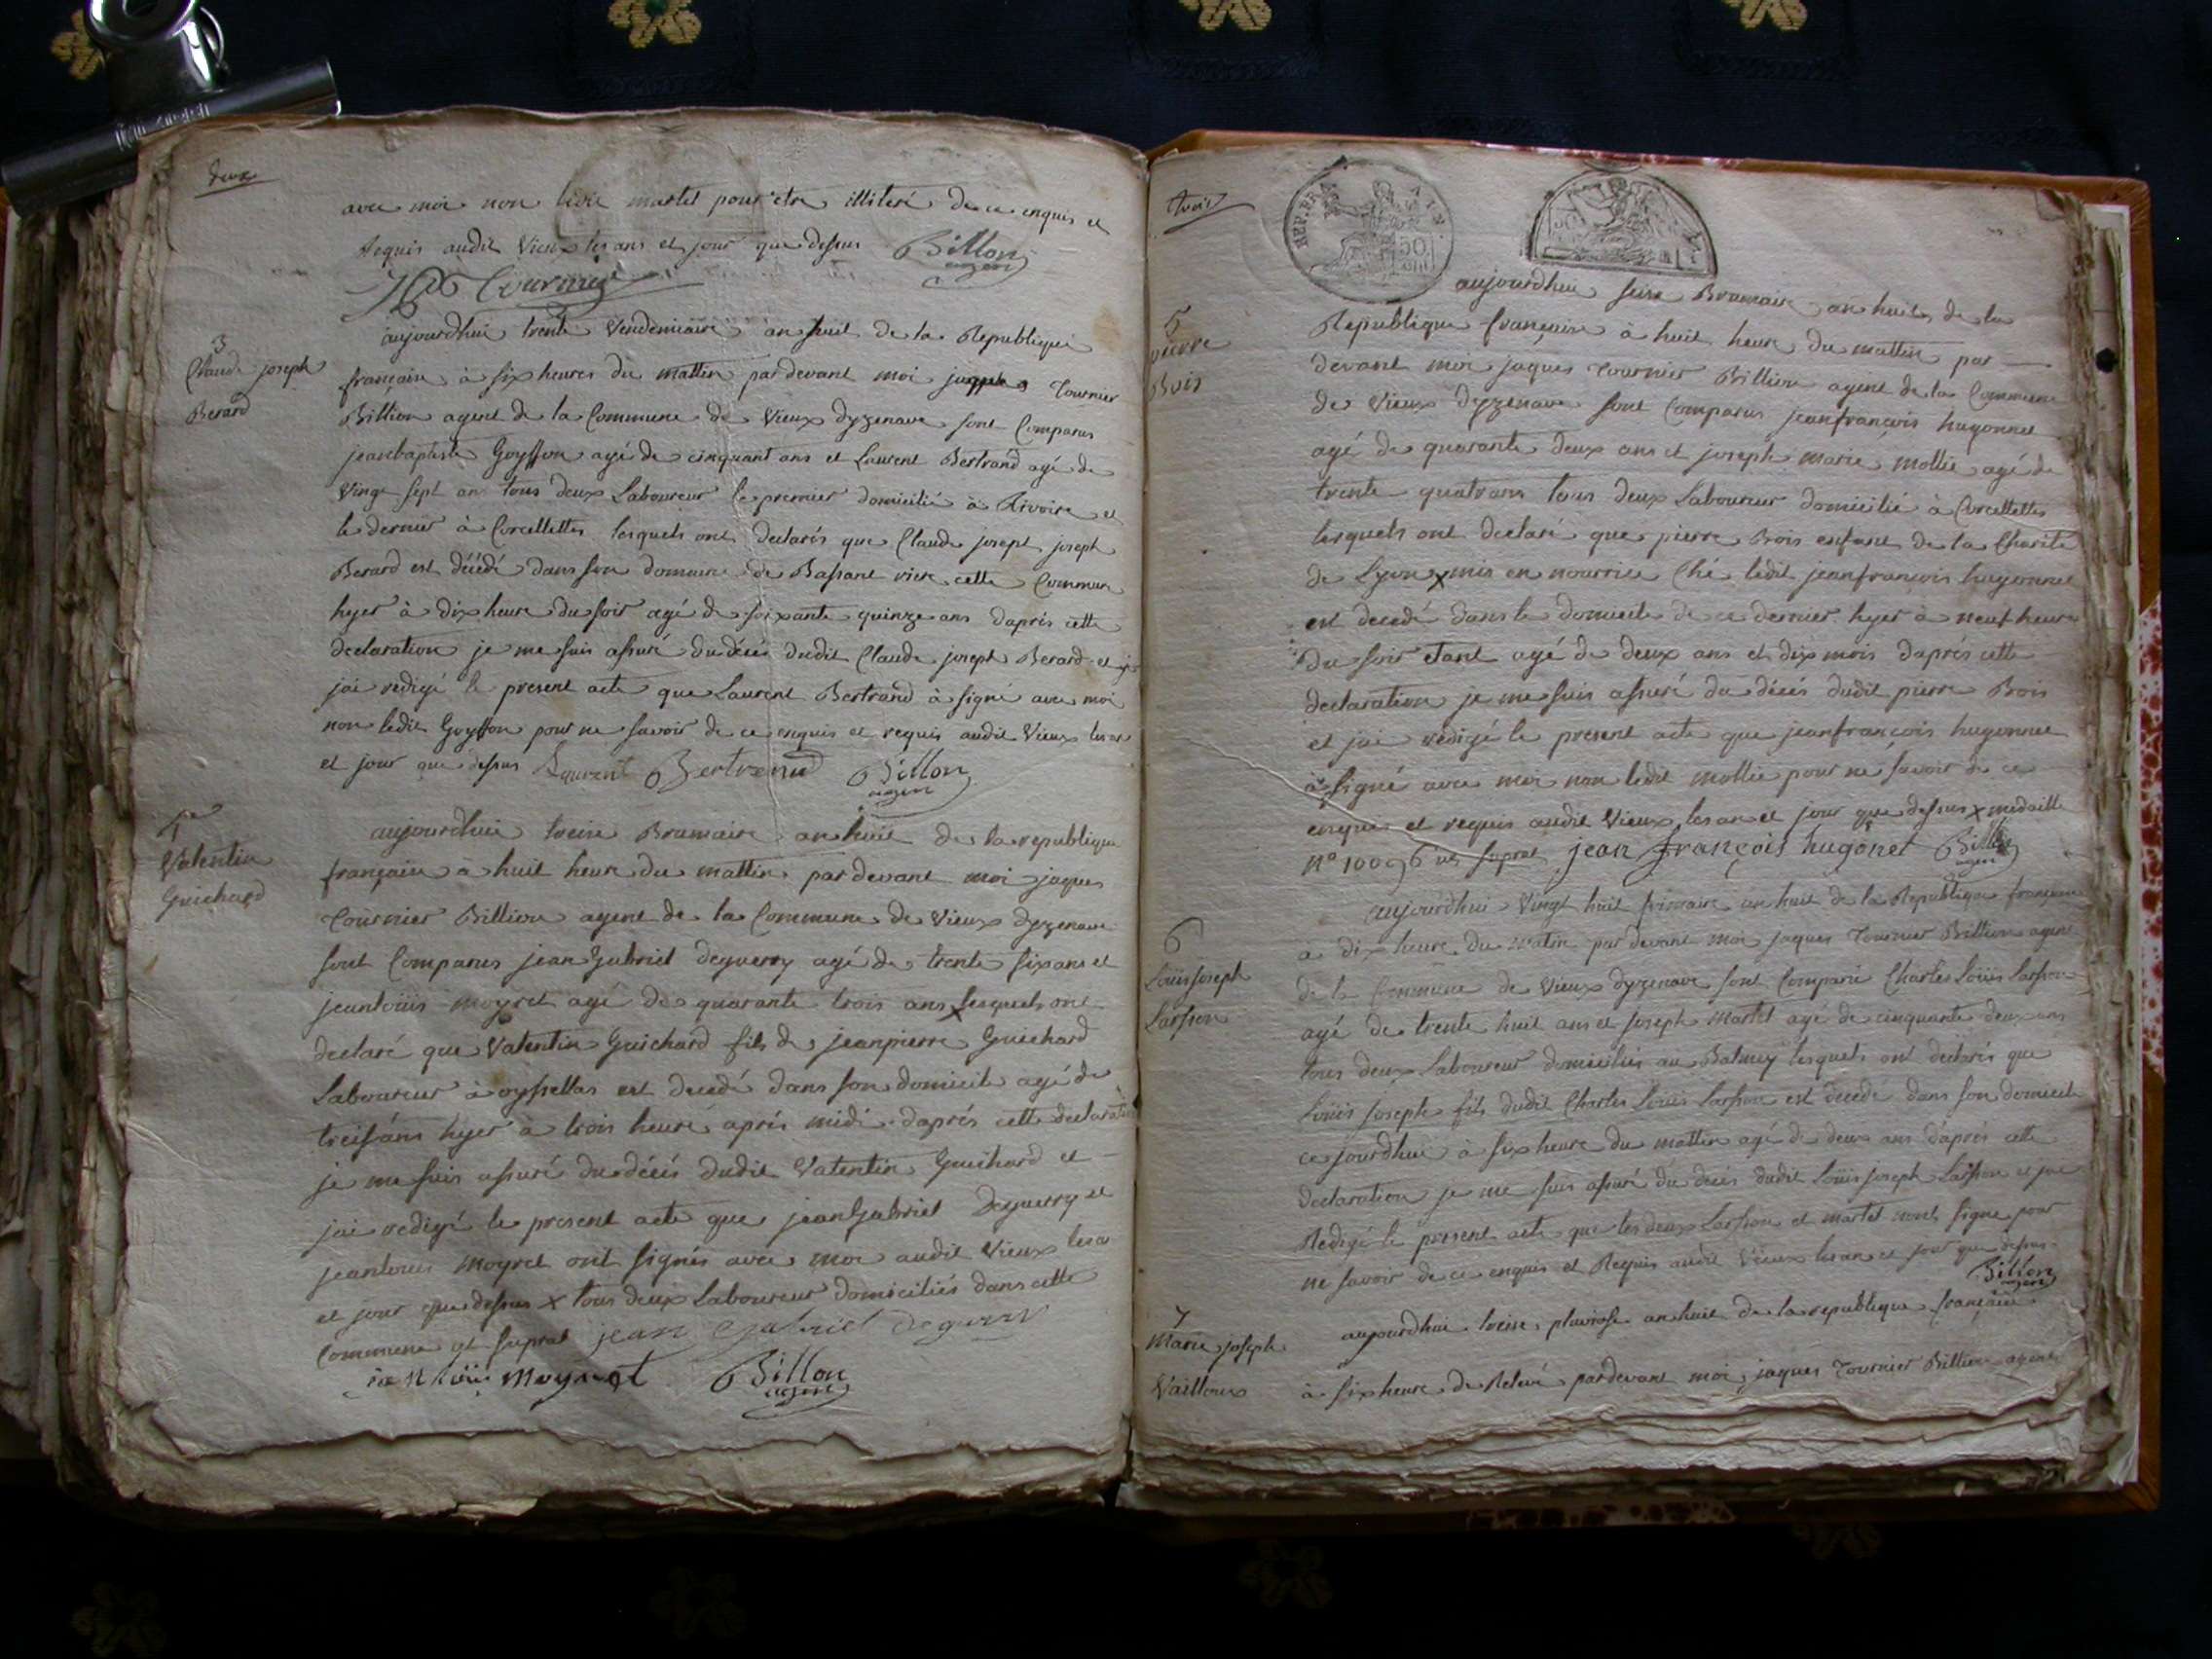 deux
avec moi non levié martel pour etre illiteré de ce enquis et
requis audit Vieux les ans et jour que dessus Billon
agent
Tournier
3
Claude joseph
Berard
aujourdhui trente Vendemiaire an huit de la Republique
française à six heures du mattin pardevant moi jaques Tournier
Billion agent de la Commune de Vieux dyzenave sont Comparus
jeanbaptiste Goyffon agé de cinquant ans et Laurent Bertrand agé de
Vingt sept ans tous deux Laboureur le premier domicilié à Rivoire et
le dernier à Corcellettes lesquels ont declarés que Claude joseph joseph
Berard est décédé dans son domaine de Bassant riere cette Commune
hyer à dix heure du soir agé de soixante quinze ans daprés cette
declaration je me suis assuré du décés dudit Claude joseph Berard et
jai redigé le present acte que Laurent Bertrand à signé avec moi
non ledit Goyffon pour ne savoir de ce enquis et requis audit Vieux les an
et jour que dessus Laurent Bertrand Billon
agent
4
Valentin
Guichard
aujourdhui treize Brumaire an huit de la republique
française à huit heure du mattin pardevant moi jaques
Tournier Billion agent de la Commune de Vieux dyzenave
sont Comparus jean Gabriel deguerry agé de trente six ans et
jeanloüis moyret agé de quarante trois ans x lesquels ont
declaré que Valentin Guichard fils de jeanpierre Guichard
Laboureur à oyssellas est decedé dans son domicile agé de
treisans hyer à trois heure aprés midi daprés cette declaration
je me suis assuré du décés dudit Valentin Guichard et
jai redigé le present acte que jean Gabriel Deguerry et
jeanlouis moyret ont signés avec moi audit Vieux les an
et jour que dessus x tous deux Laboureur domiciliés dans cette
Commune ut suprat jean Gabriel deguerry
jean loüis moyret Billon
agent
trois
REP. FRA.
AIN
50
5
pierre
Bois
aujourdhui seize Brumaire an huit de la
Republique française à huit heure du mattin par
devant moi jaques Tournier Billion agent de la Commune
de Vieux dyzenave sont Comparus jeanfrançois hugonnet
agé de quarante deux ans et joseph marie mollie agé de
trente quatrans tous deux Laboureur domicilié à Corcellettes
lesquels ont declaré que pierre Bois enfant de la Charité
de Lyon x mis en nourrice Ché ledit jeanfrançois hugonnet
est decedé dans le domicile de ce dernier hyer à neuf heure
du soir etant agé de deux ans et dix mois daprés cette
declaration je me suis assuré du décés dudit pierre Bois
et jai redigé le present acte que jeanfrançois hugonnet
à signé avec moi non ledit mollie pour ne savoir de ce
enquis et requis audit Vieux les an et jour que dessus x medaille
n° 10096 ut suprat jean françois hugonet Billon
agent
6
Louis joseph
Larsson
aujourdhui Vingt huit frimaire an huit de la Republique française
a dix heure du matin pardevant moi jaques Tournier Billion agent
de la Commune de Vieux dyzenave sont Comparu Charles Loüis Larsson
agé de trente huit ans et joseph Martel agé de cinquante deux ans
tous deux Laboureur domiciliés au Balmey lesquels ont declarés que
Loüis joseph fils dudit Charles Loüis Larsson est decedé dans son domicile
ce jourdhui à six heure du mattin agé de deux ans daprés cette
declaration je me suis assuré du décés dudit Loüis joseph Larsson et jai
Redigé le present acte que les deux Larsson et martel nont signe pour
ne savoir de ce enquis et Requis audit Vieux les an et jour que dessus
Billon
agent
7
Marie joseph
Vailloux
aujourdhui treize pluviose an huit de la republique française
à six heure de Relevé pardevant moi jaques Tournier Billion agent